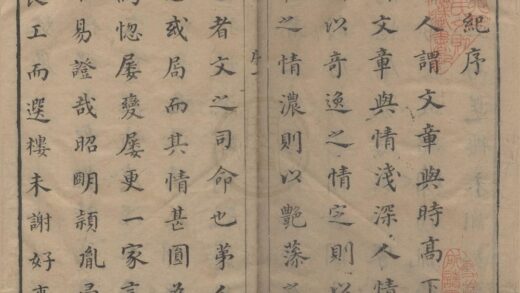 紀序
人謂文章與時高下
文章與情淺深人情
以奇逸之情定則以
之情濃則以艷藻
序
者文之司命也苐人
或局而其情甚圓
惚屡變屡更一家言
易證哉昭明頴胤
工而選樓未謝好